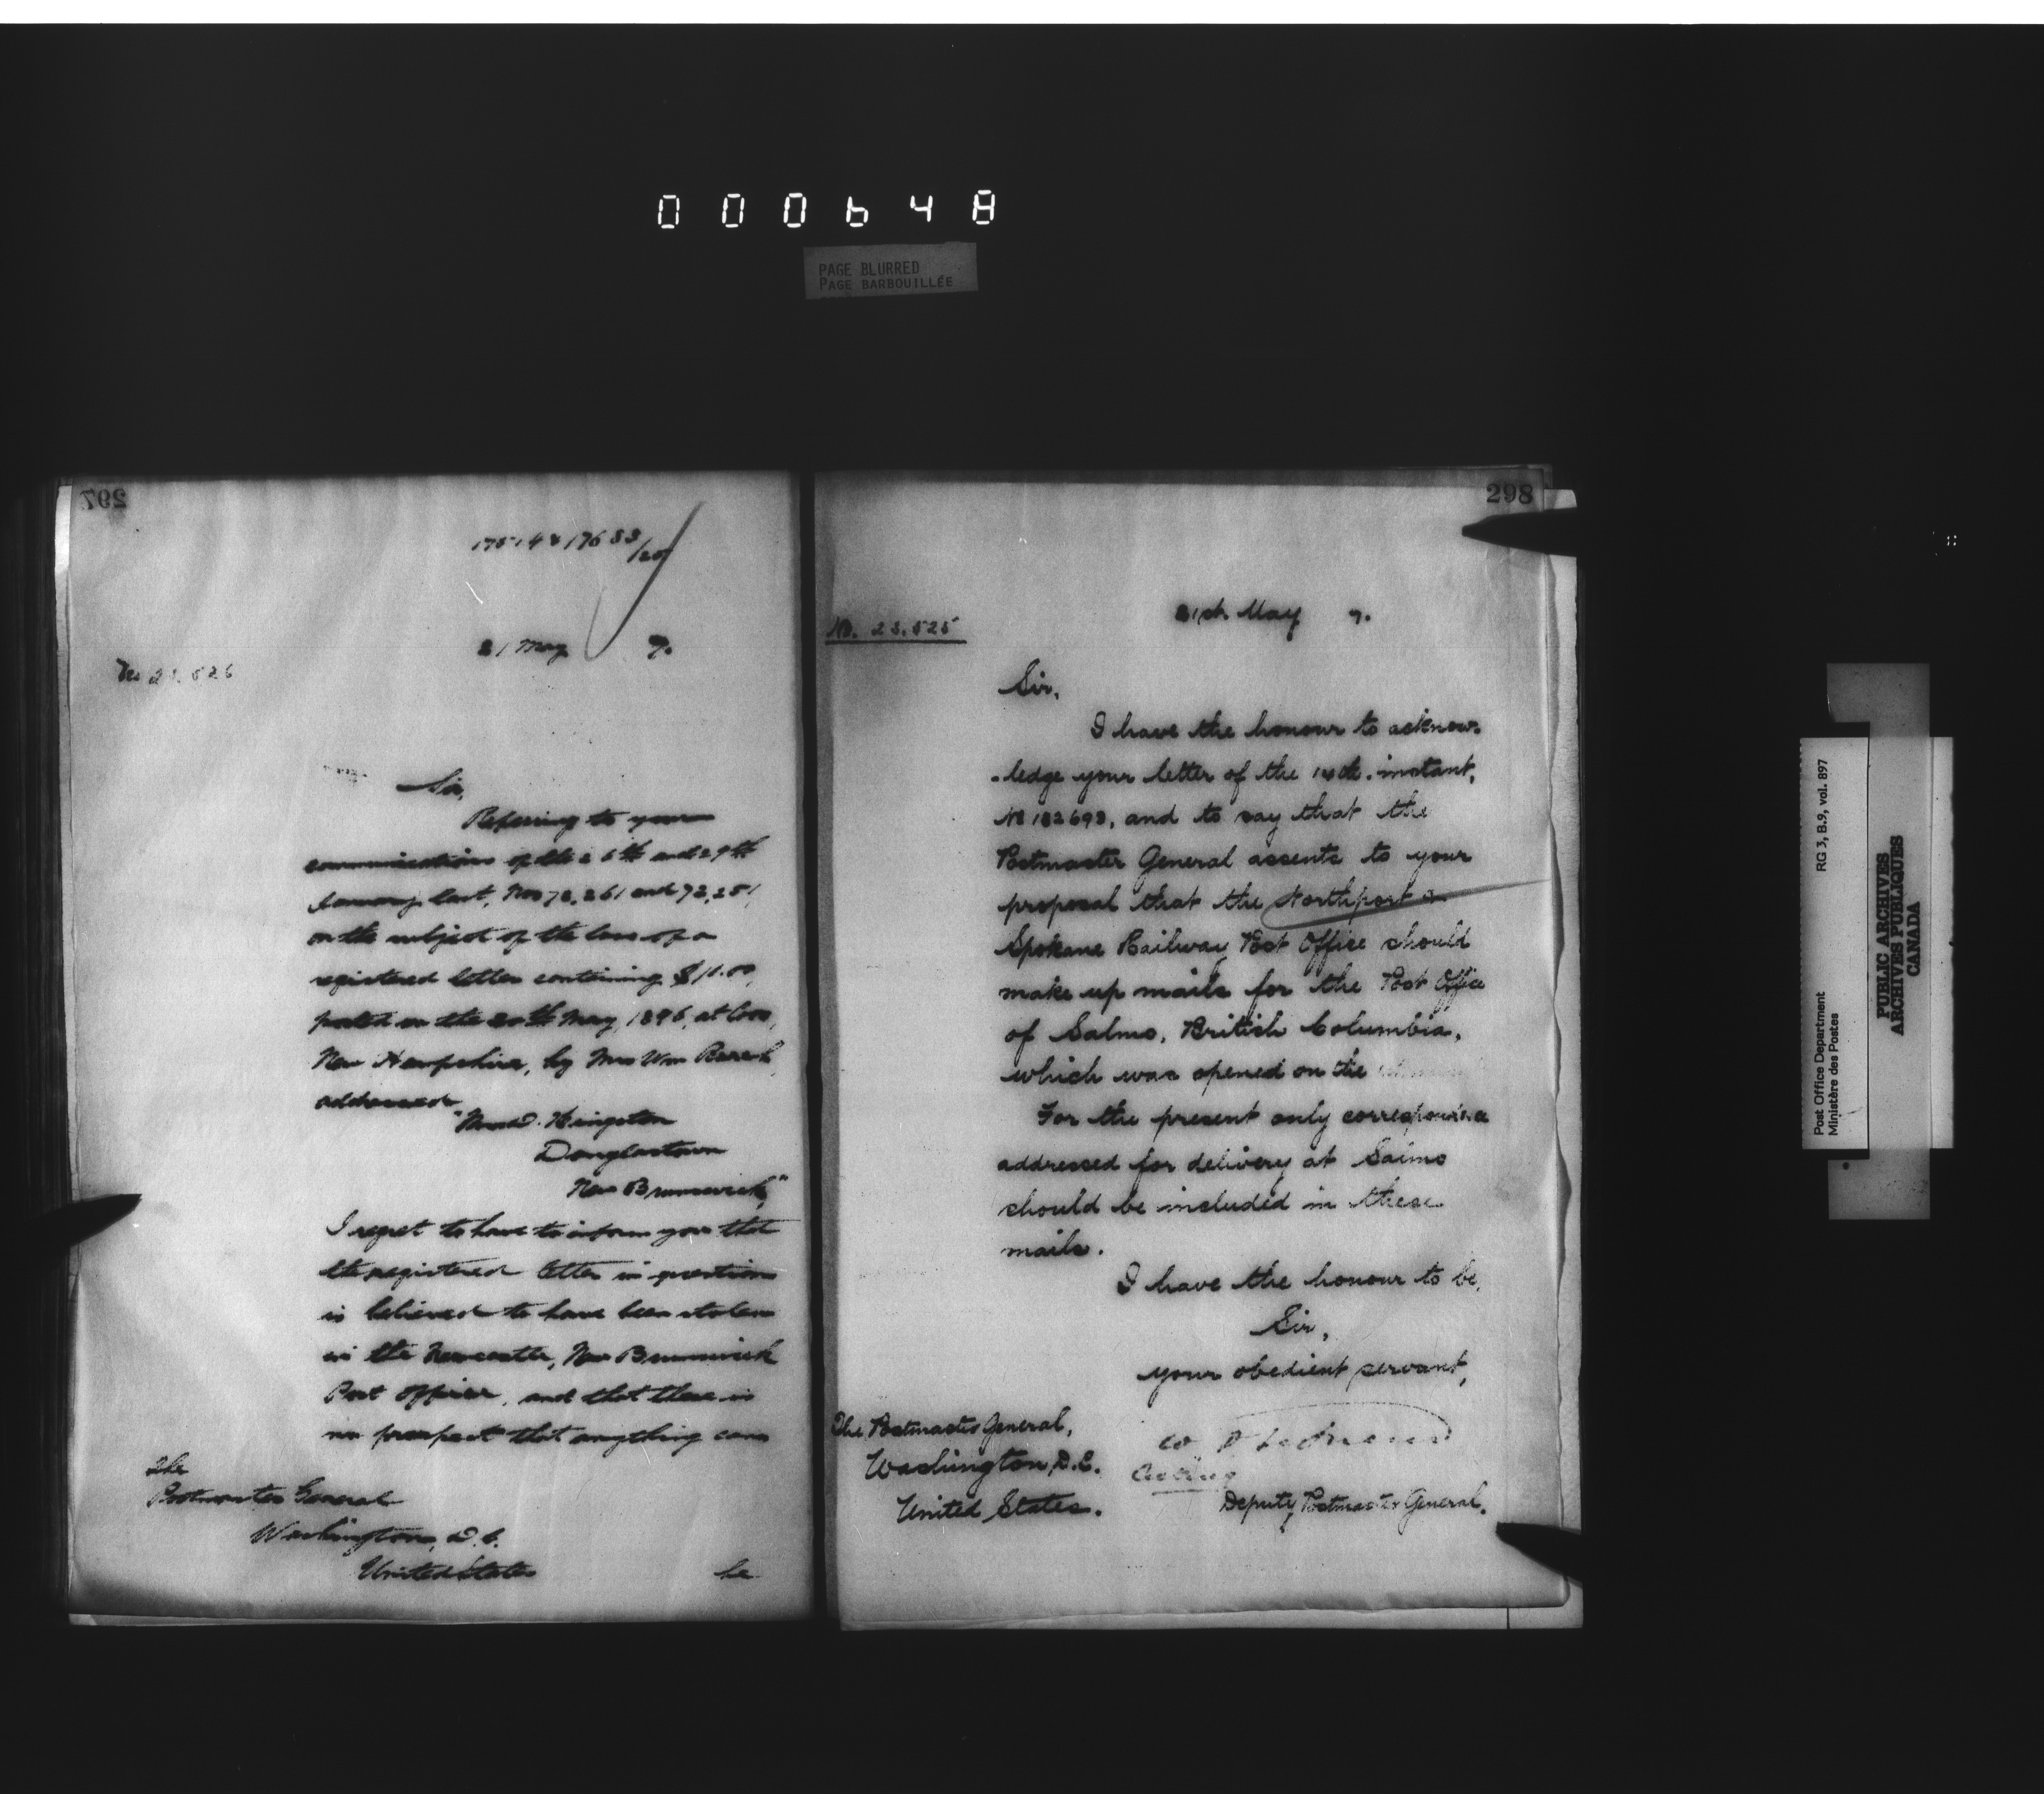 000648
PAGE BLURRED
PAGE BARBOUILLÉE
297
21 May 7.
No 23.526
Sir,
Referring to your
communications of the 26th and 29th
January last, Nos 72,261 and 72,251,
on the subject of the loss of a
registered letter containing $10.00,
posted on the 20th May, 1896, at Coos,
New Hampshire, by Mrs Wm
addressed
"Mrs D. Hingston
Douglastown
New Brunswick,"
I regret to have to inform you that
the registered letter in question
is believed to have been stolen
in the Newcastle, New Brunswick
Post Office, and that there is
no prospect that anything can
The
Postmaster General
Washington, D.C.
United States
be
298
21st May 7.
No. 23.525
Sir,
I have the honour to acknow-
-ledge your letter of the 14th. instant,
No 182693, and to say that the
Postmaster General assents to your
proposal that the Northport &
Spokane Railway Post Office should
make up mails for the Post Office
of Salmo, British Columbia,
which was opened on the
For the present only correspondence
addressed for delivery at Salmo
should be included in these
mails.
I have the honour to be,
Sir,
your obedient servant,
The Postmaster General,
Washington, D.C.
United States.
Acting
Deputy Postmaster General.
Post Office Department RG 3, B.9, vol. 897
Ministère des Postes
PUBLIC ARCHIVES
ARCHIVES PUBLIQUES
CANADA